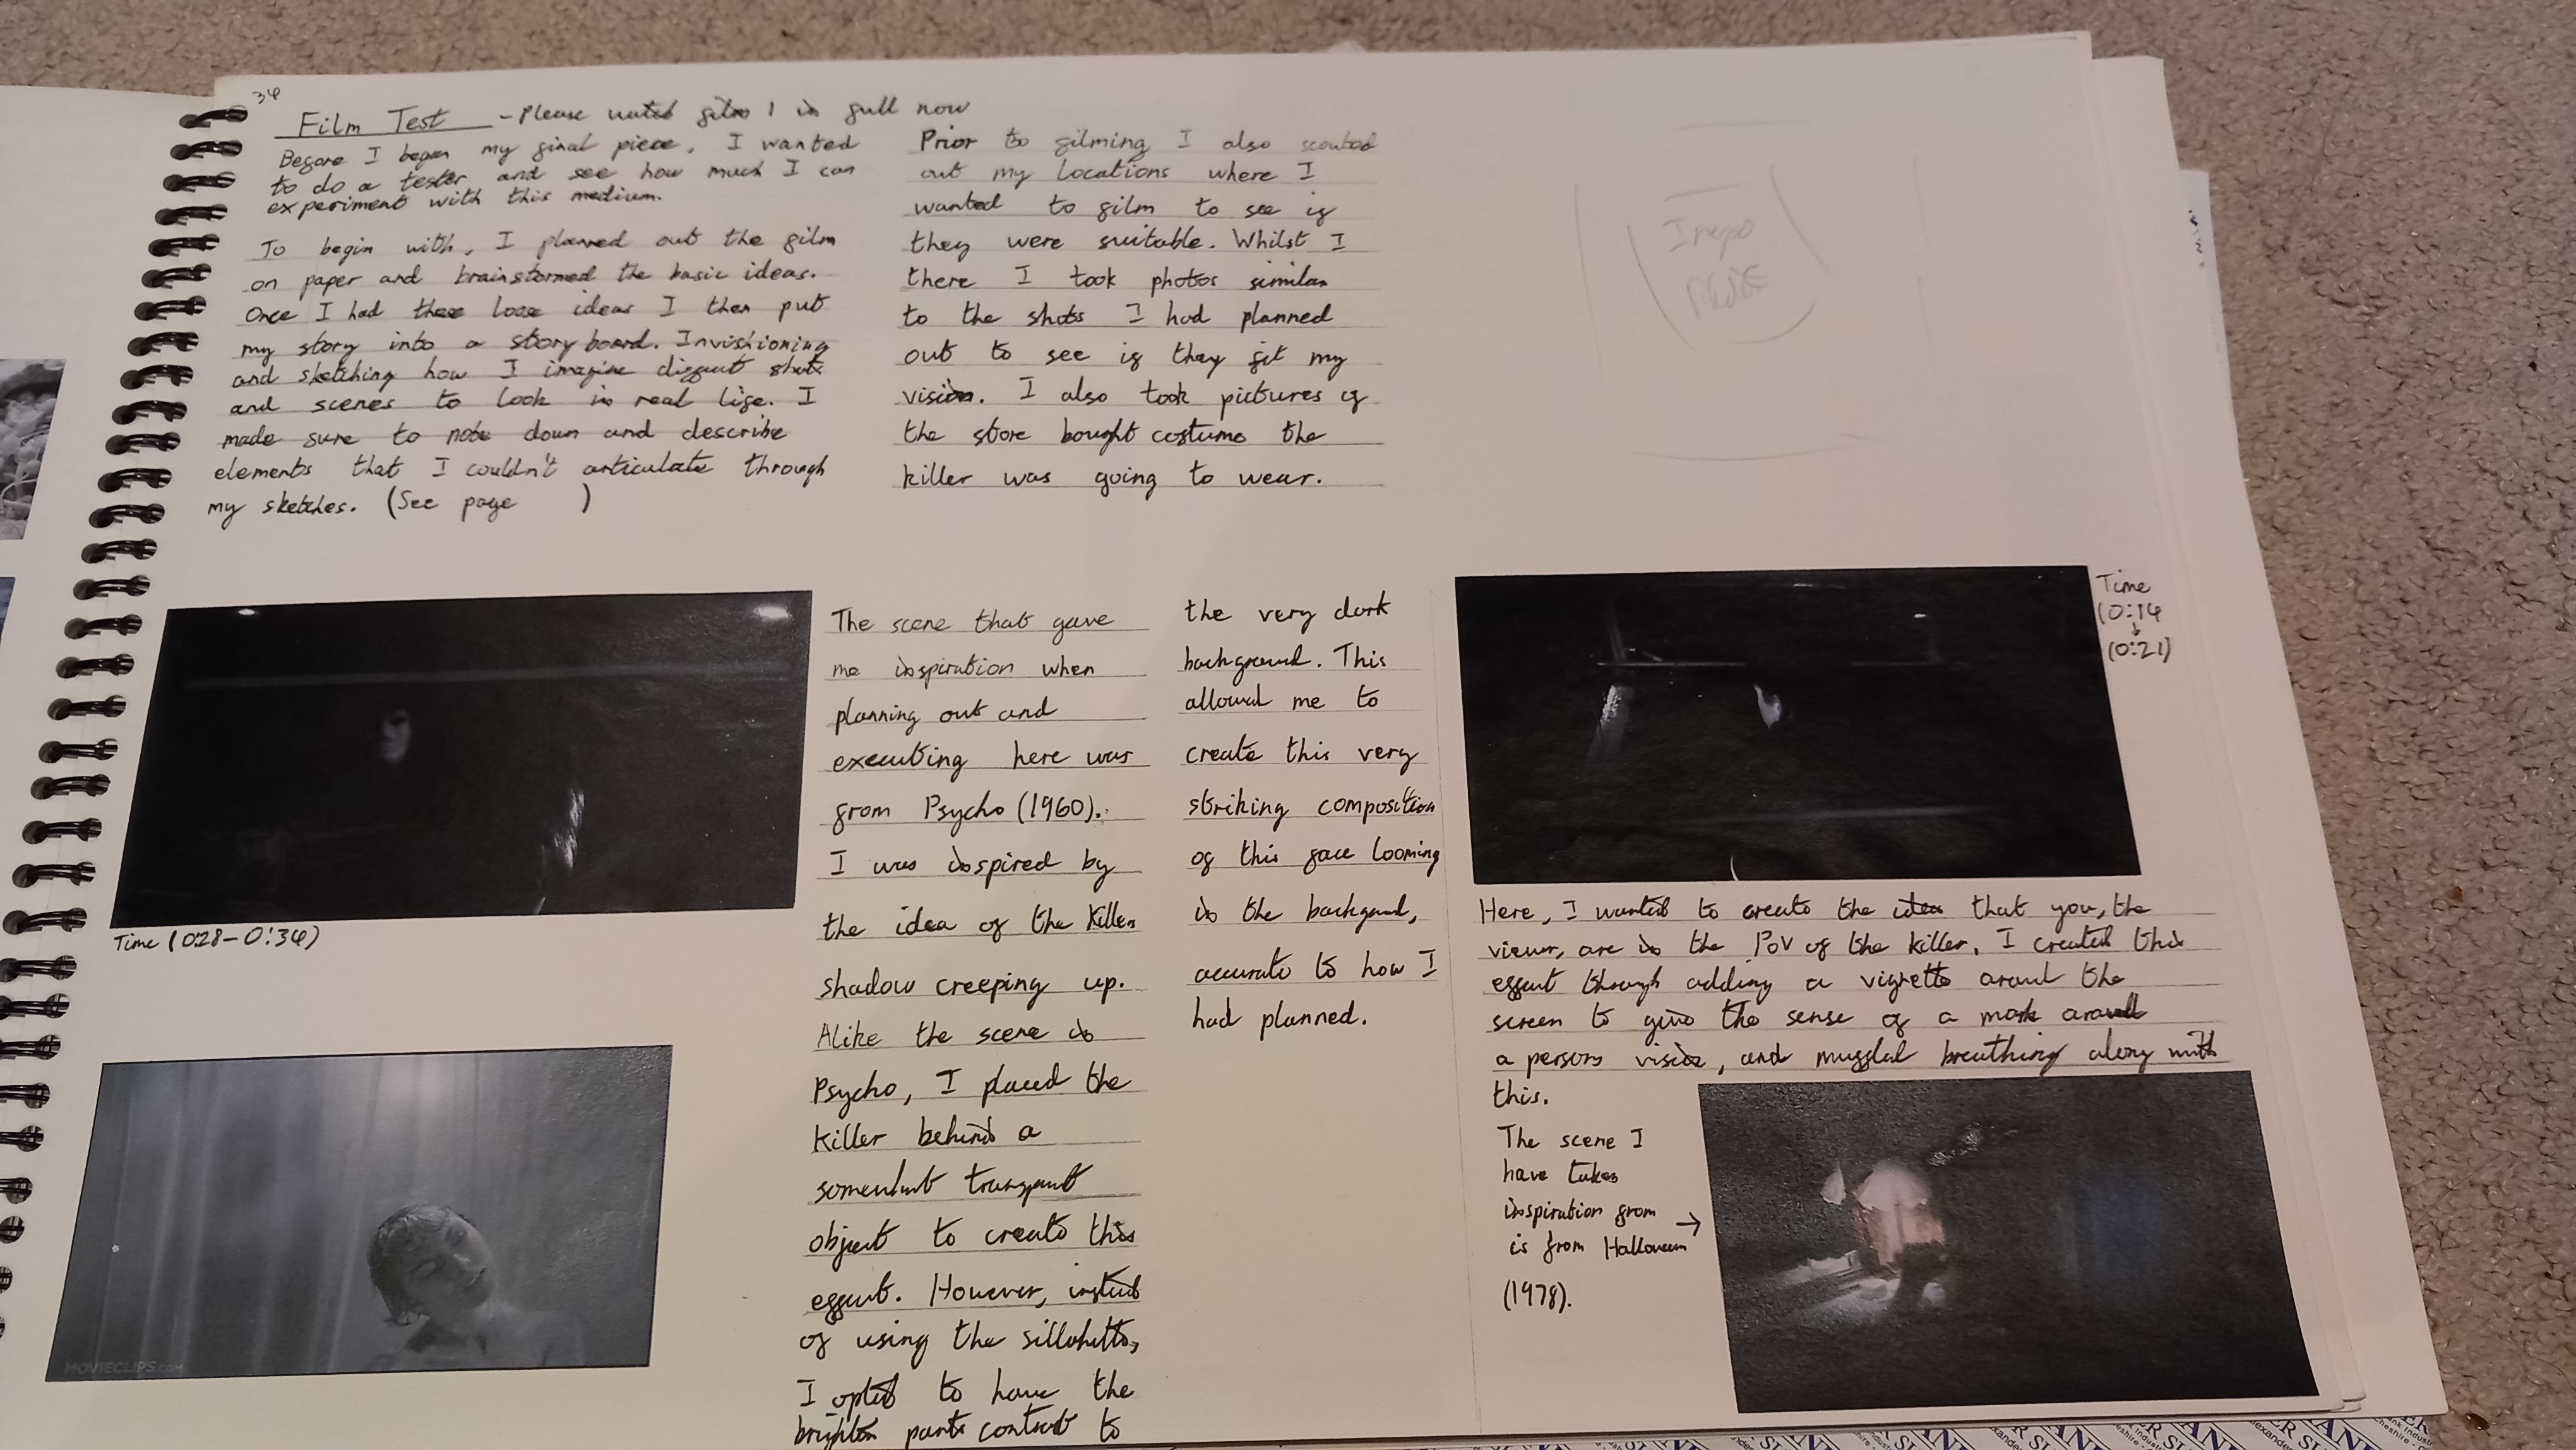 34
Film Test - Please watch film 1 in full now
Before I began my final piece, I wanted
to do a tester and see how much I can
experiment with this medium.
To begin with, I planned out the film
on paper and brainstormed the basic ideas.
Once I had these loose ideas I then put
my story into a story board. Invishioning
and sketching how I imagine different shots
and scenes to look in real life. I
made sure to note down and describe
elements that I couldn't articulate through
my sketches. (See page )
Prior to filming I also scouted
out my locations where I
wanted to film to see if
they were suitable. Whilst I
there I took photos similar
to the shots I had planned
out to see if they fit my
vision. I also took pictures of
the store bought costume the
killer was going to wear.
Time (0:28-0:34)
MOVIECLIPS.COM
The scene that gave
me inspiration when
planning out and
executing here was
from Psycho (1960).
I was inspired by
the idea of the killers
shadow creeping up.
Alike the scene in
Psycho, I placed the
killer behind a
somewhat transparent
object to create this
effect. However, instead
of using the sillohette,
I opted to have the
brighter parts contrast to
the very dark
background. This
allowed me to
create this very
striking composition
of this face looming
in the background,
accurate to how I
had planned.
Time
(0:14
↓
(0:21)
Here, I wanted to create the idea that you, the
viewer, are in the POV of the killer. I created this
effect through adding a vignette around the
screen to give the sense of a mask around
a persons vision, and muffled breathing along with
this.
The scene I
have taken
inspiration from →
is from Halloween
(1978).